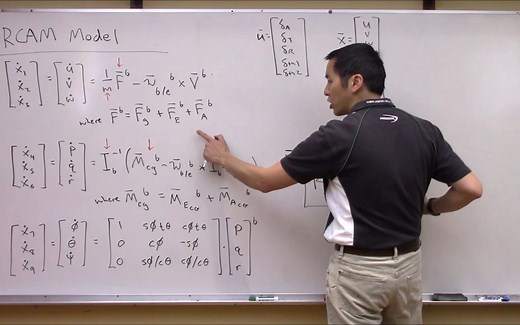 RCAM Model
ū = [δA δT δR δth1 δth2] x̄ = [u v
[ẋ1 ẋ2 ẋ3] = [u̇ v̇ ẇ] = 1/m F̄^b - ω̄_b/e^b × V̄^b
where F̄^b = F̄_g^b + F̄_E^b + F̄_A^b
[ẋ4 ẋ5 ẋ6] = [ṗ q̇ ṙ] = I_b^-1 (M̄_cg^b - ω̄_b/e^b × I_b
where M̄_cg^b = M̄_Ecg^b + M̄_Acg^b
[ẋ7 ẋ8 ẋ9] = [φ̇ θ̇ ψ̇] = [1 sφtθ cφtθ
0 cφ -sφ
0 sφ/cθ cφ/cθ] · [p q r]^b